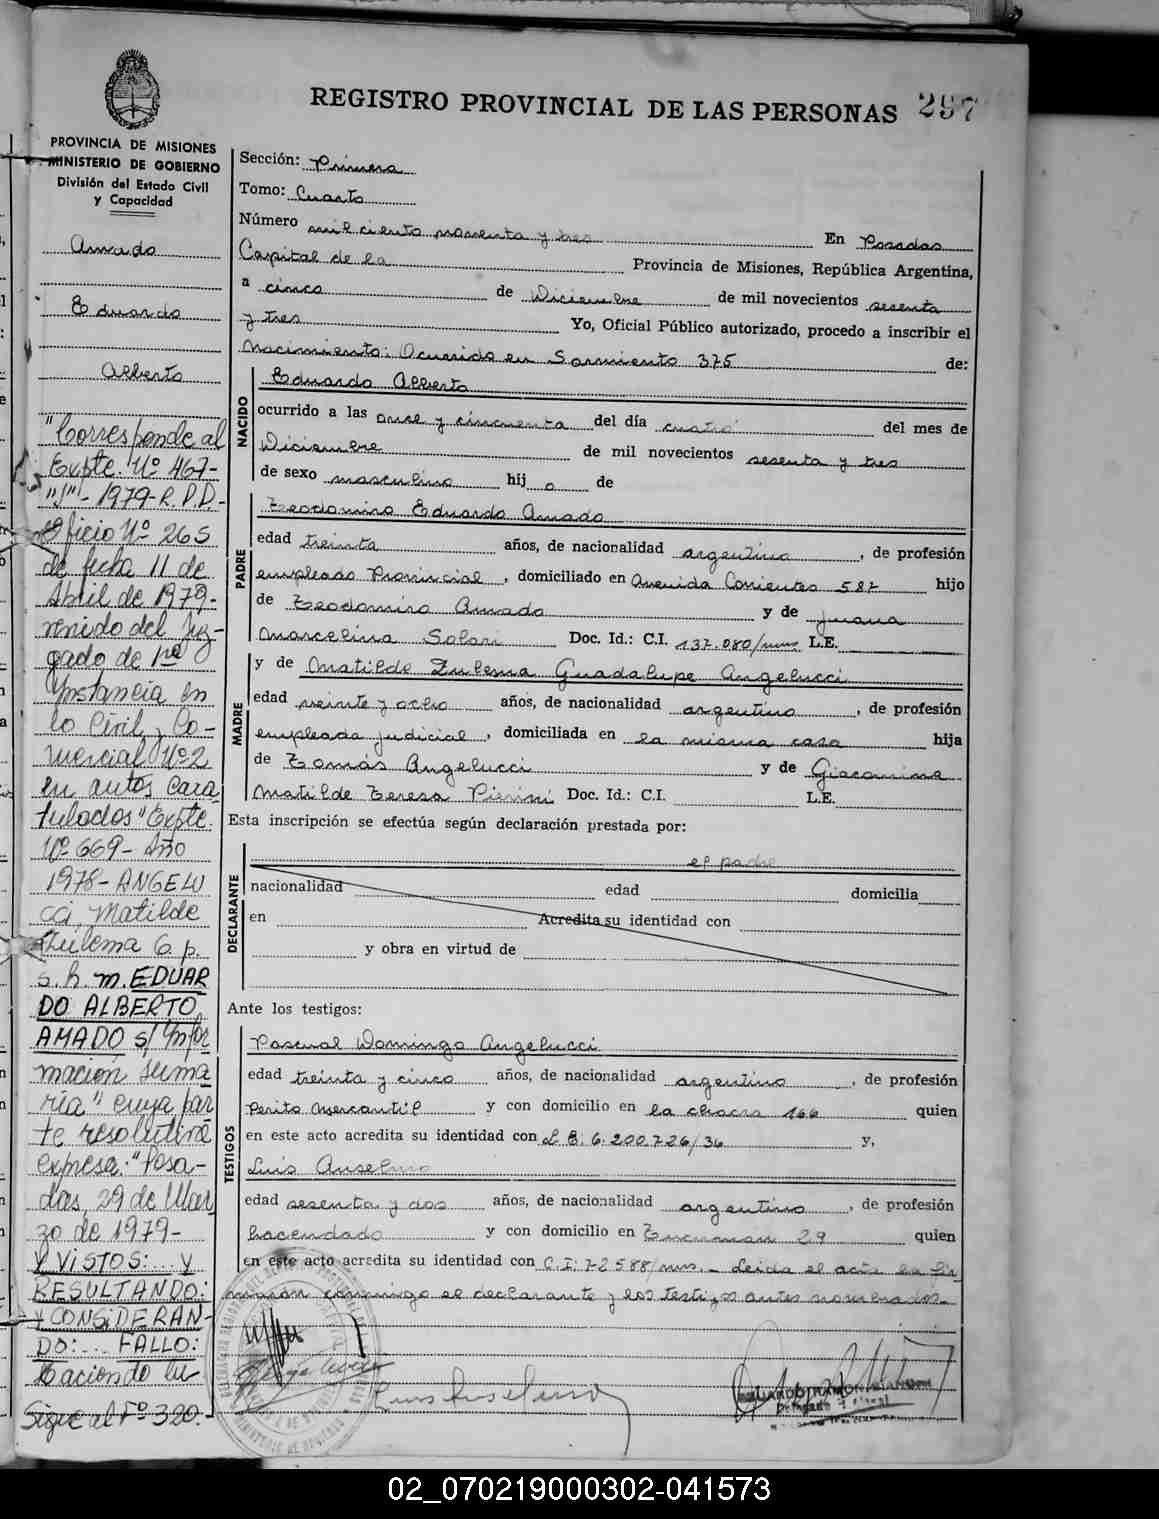 REGISTRO PROVINCIAL DE LAS PERSONAS 297
PROVINCIA DE MISIONES
MINISTERIO DE GOBIERNO
División del Estado Civil
y Capacidad
Amado
Eduardo
Alberto
"Corresponde al
Expte. Nº 467-
"J"- 1979- R.P.P.-
Oficio Nº 265
de fecha 11 de
Abril de 1979-
venido del Juz-
gado de 1ra
Instancia en
lo Civil y Co-
mercial Nº 2
en autos Cara
tulados "Expte.
Nº 669- Año
1978- ANGELU
cci, Matilde
Zulema G. p.
s. h. m. EDUAR
DO ALBERTO
AMADO s/ Infor
mación Suma
ria" cuya par
te resolutiva
expresa: "Posa-
das, 29 de Mar
zo de 1979-
Y VISTOS:... Y
RESULTANDO:
Y CONSIDERAN-
DO:... FALLO:
Haciendo lu
Sigue al Fº 320-
Sección: Primera
Tomo: Cuarto
Número mil ciento noventa y tres En Posadas
Capital de la Provincia de Misiones, República Argentina,
a cinco de Diciembre de mil novecientos sesenta
y tres Yo, Oficial Público autorizado, procedo a inscribir el
Nacimiento: Ocurrido en Sarmiento 375 de:
NACIDO
Eduardo Alberto
ocurrido a las once y cincuenta del día cuatro del mes de
Diciembre de mil novecientos sesenta y tres
de sexo masculino hij o de
PADRE
Teodomiro Eduardo Amado
edad treinta años, de nacionalidad argentino, de profesión
empleado Provincial, domiciliado en Avenida Corrientes 587 hijo
de Teodomiro Amado y de Juana
Marcelina Solari Doc. Id.: C.I. 137.080/mns L.E.
MADRE
y de Matilde Zulema Guadalupe Angelucci
edad veinte y ocho años, de nacionalidad argentino, de profesión
empleada judicial, domiciliada en la misma casa hija
de Tomás Angelucci y de Giacomina
Matilde Teresa Pierini Doc. Id.: C.I. L.E.
Esta inscripción se efectúa según declaración prestada por:
DECLARANTE
el padre
nacionalidad edad domicilia
en Acredita su identidad con
y obra en virtud de
Ante los testigos:
TESTIGOS
Pascual Domingo Angelucci
edad treinta y cinco años, de nacionalidad argentino, de profesión
Perito Mercantil y con domicilio en la chacra 166 quien
en este acto acredita su identidad con L.E. 6.200.726/36 y,
Luis Anselmo
edad sesenta y dos años, de nacionalidad argentino, de profesión
hacendado y con domicilio en Tucuman 29 quien
en este acto acredita su identidad con C.I: 72588/mns. - Leida el acta la fir
maron conmigo el declarante y los testigos antes nombrados.-
Luis Anselmo
02_070219000302-041573